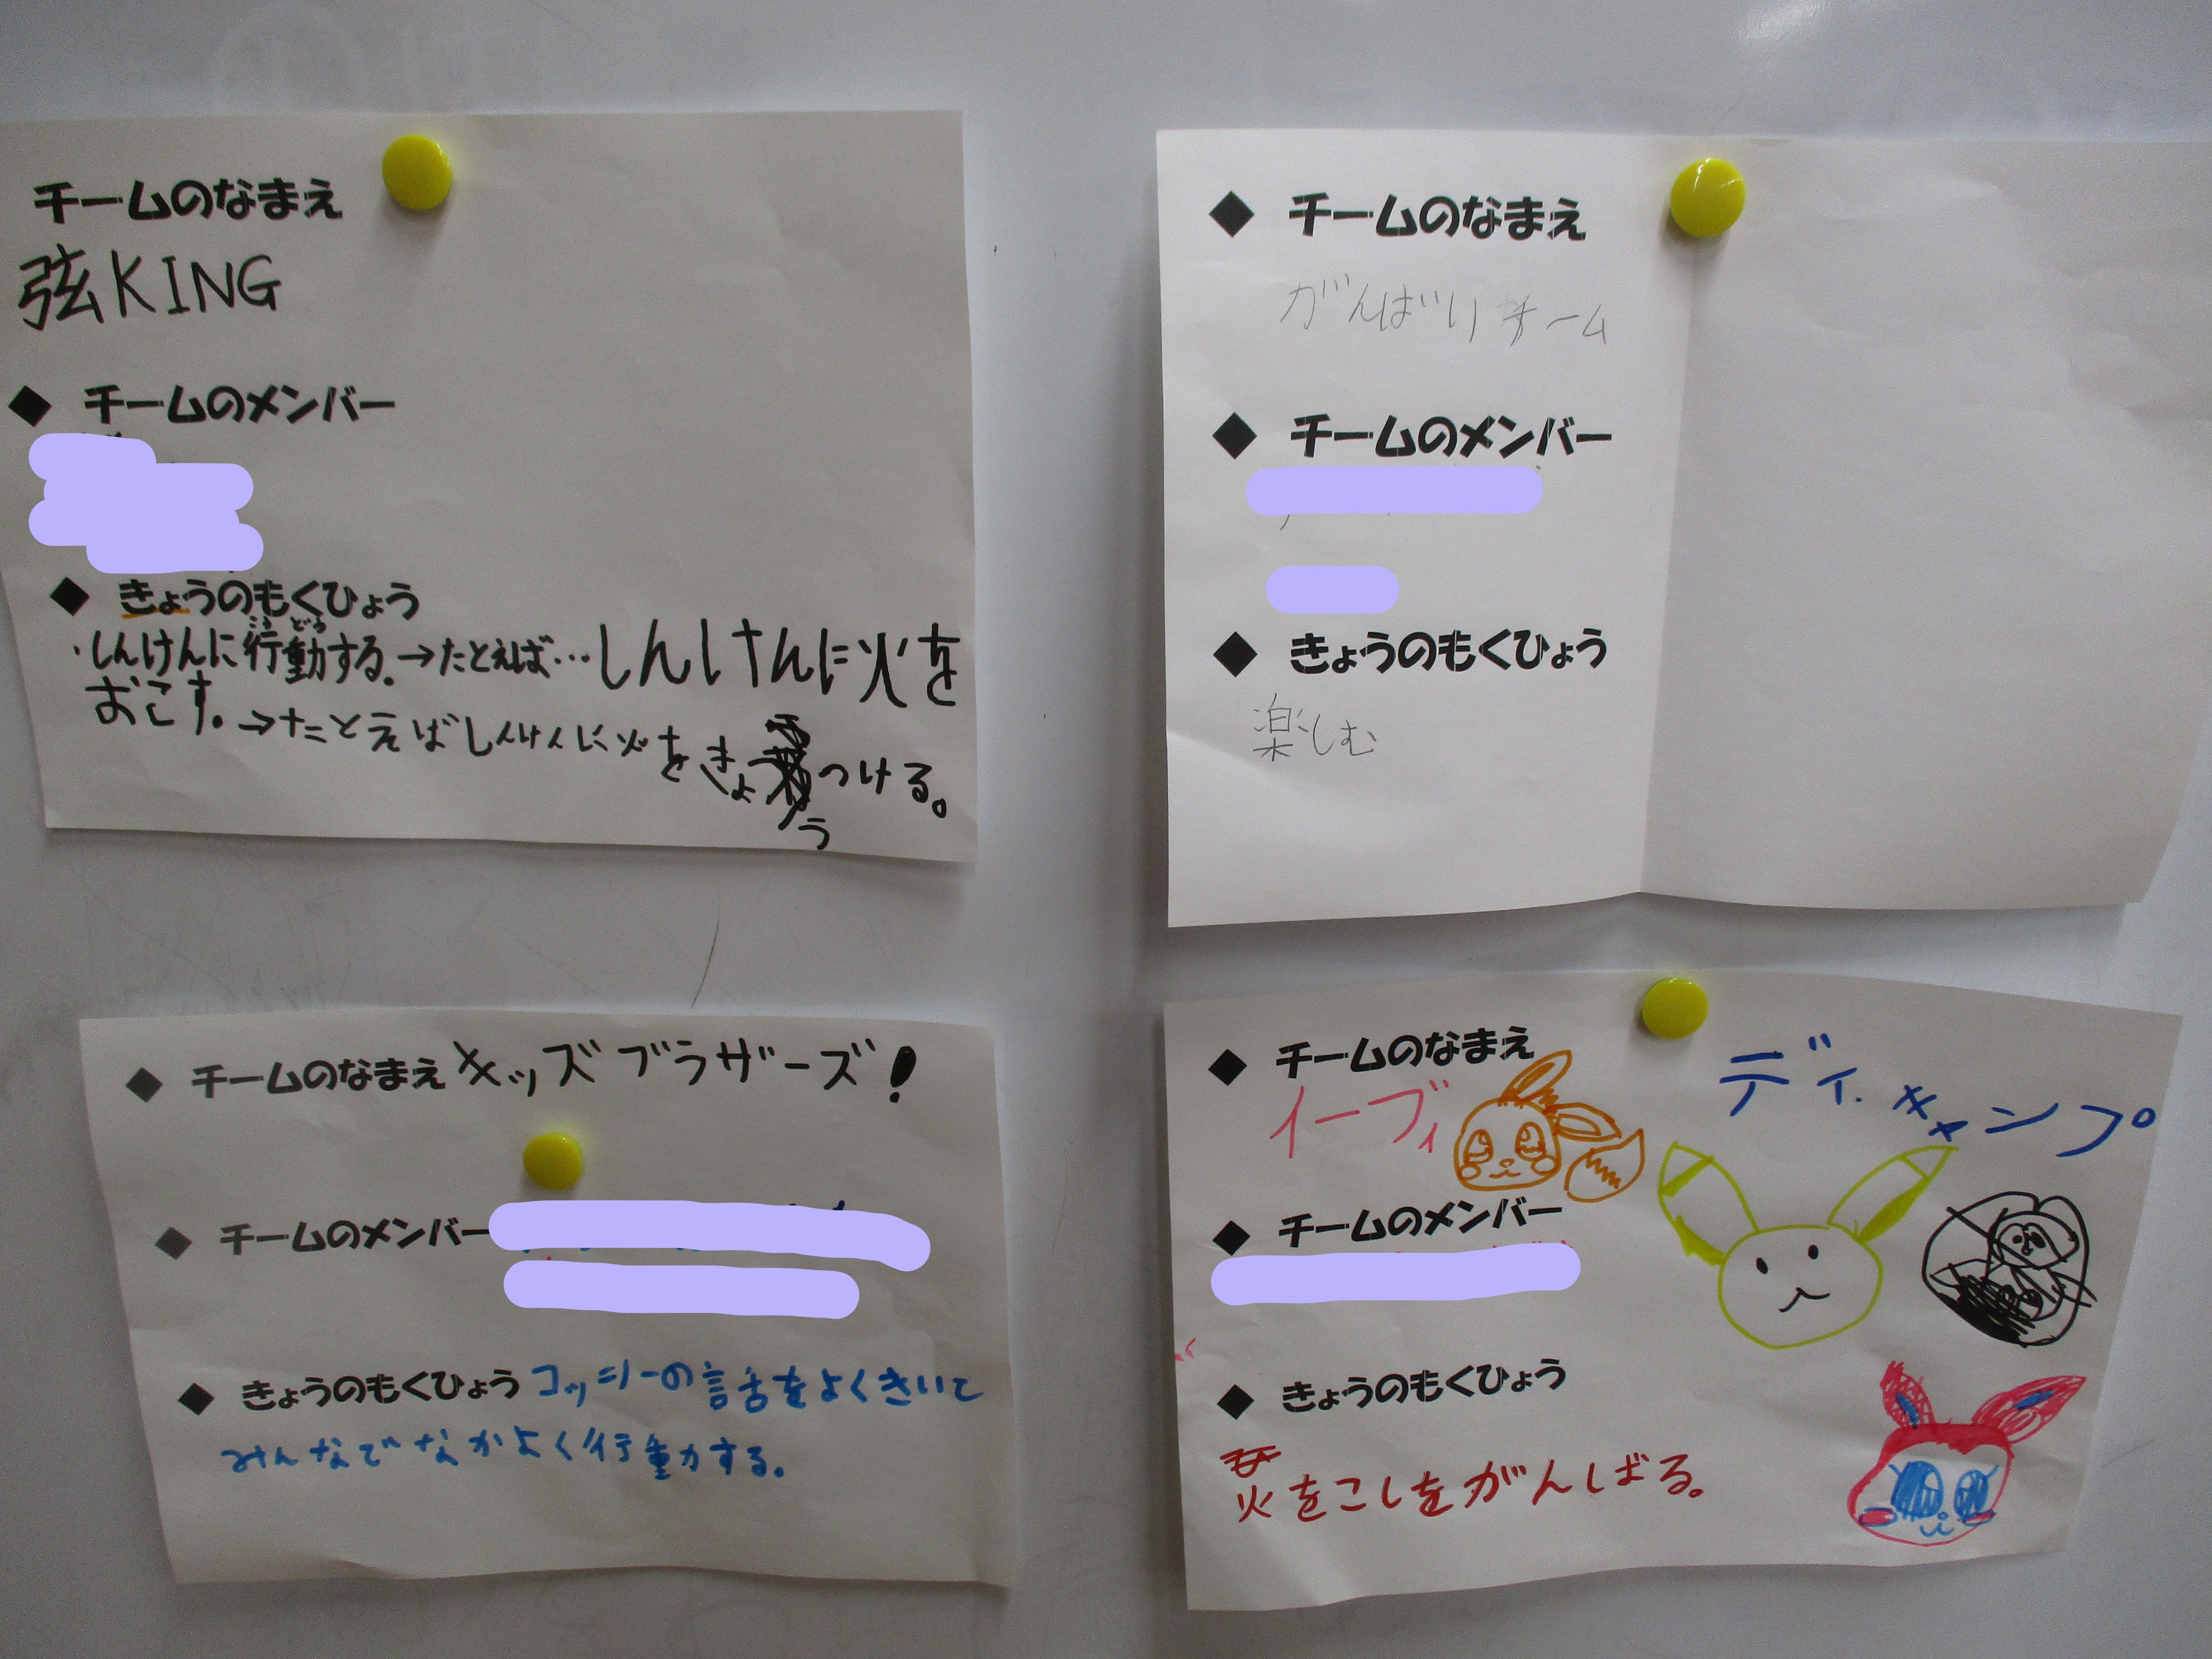 チームのなまえ
弦KING
◆ チームのメンバー
◆ きょうのもくひょう
こう どう
・しんけんに行動する。→たとえば…しんけんに火を
おこす。→たとえばしんけんに火をきょうつける。
◆ チームのなまえ
がんばりチーム
◆ チームのメンバー
◆ きょうのもくひょう
楽しむ
◆ チームのなまえ キッズブラザーズ!
◆ チームのメンバー
◆ きょうのもくひょう コッシーの話をよくきいて
みんなでなかよく行動する。
◆ チームのなまえ
イーブイ
ディキャンプ
◆ チームのメンバー
◆ きょうのもくひょう
火をこしをがんばる。